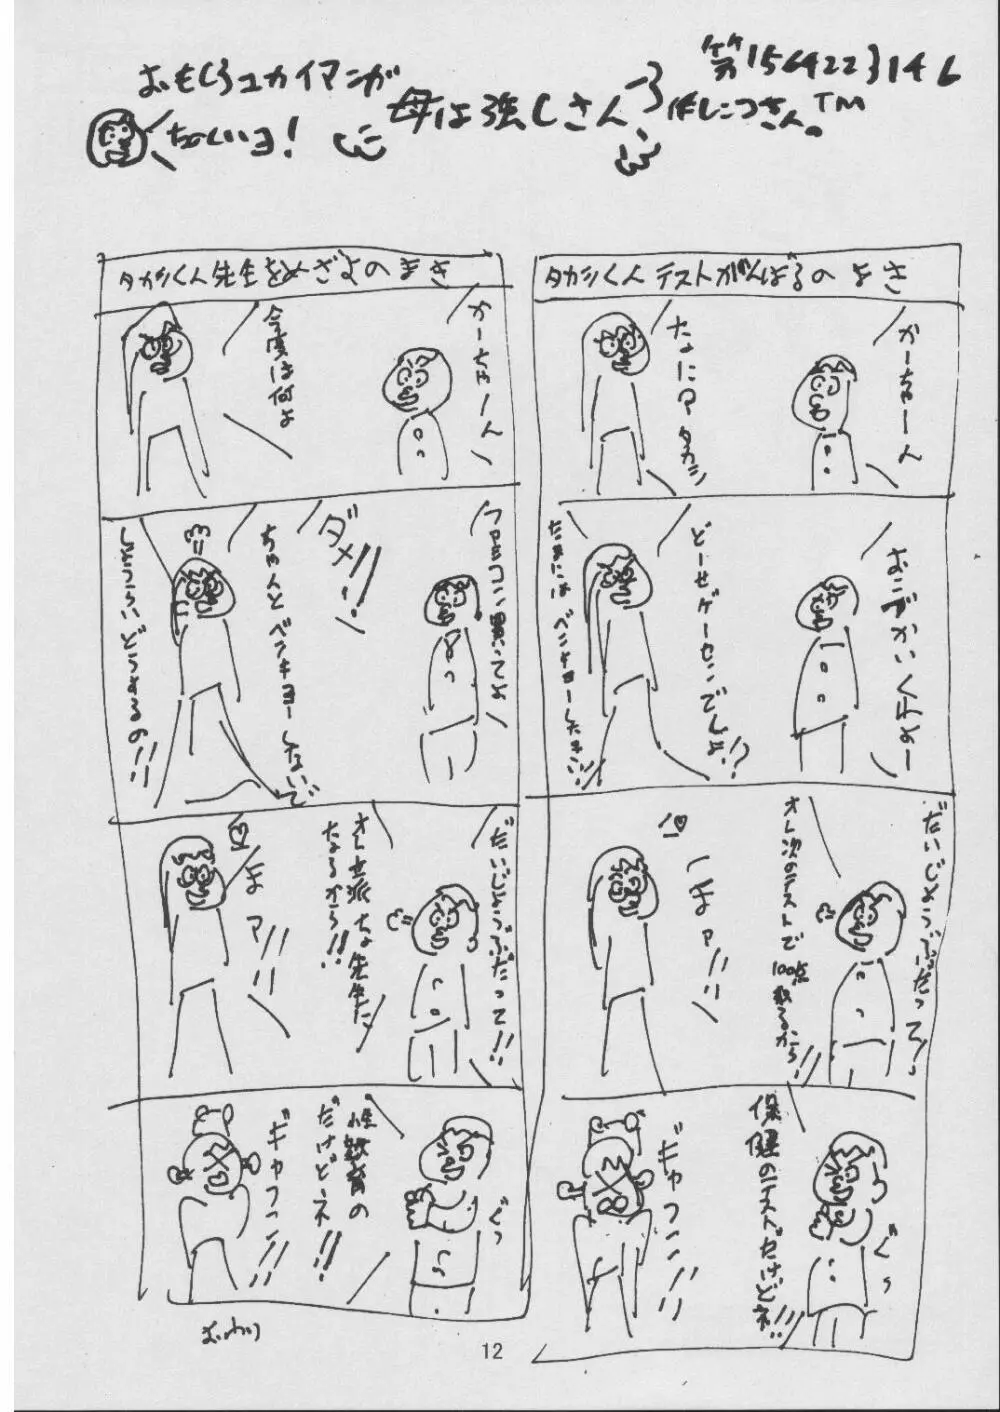 おもしろユカイマンガ
たのしいヨ!
母は強しさん
第156422314 6
作しこつさん。TM
タカシくんテストがんばるのまき
かーちゃーん
なに?タカシ
おこづかいくれよー
どーせゲーセンでしょ!?
だめだめベンキョーしなさい!!
だいじょうぶだってー
オレ次のテストで
100点取るから!!
しまァ!!
保健のテストだけどネ!!
ぐっ
ギャフン!!
タカシくん先生をめざすのまき
かーちゃーん
今度は何よ
ダメ!!
ちゃんとベンキョーしないで
しょうらいどうするの!!
だいじょうぶだって!!
オレ立派な先生に
なるから!!
まァ!!
性教育の
だけどネ!!
ぐっ
ギャフン!!
おわり
12